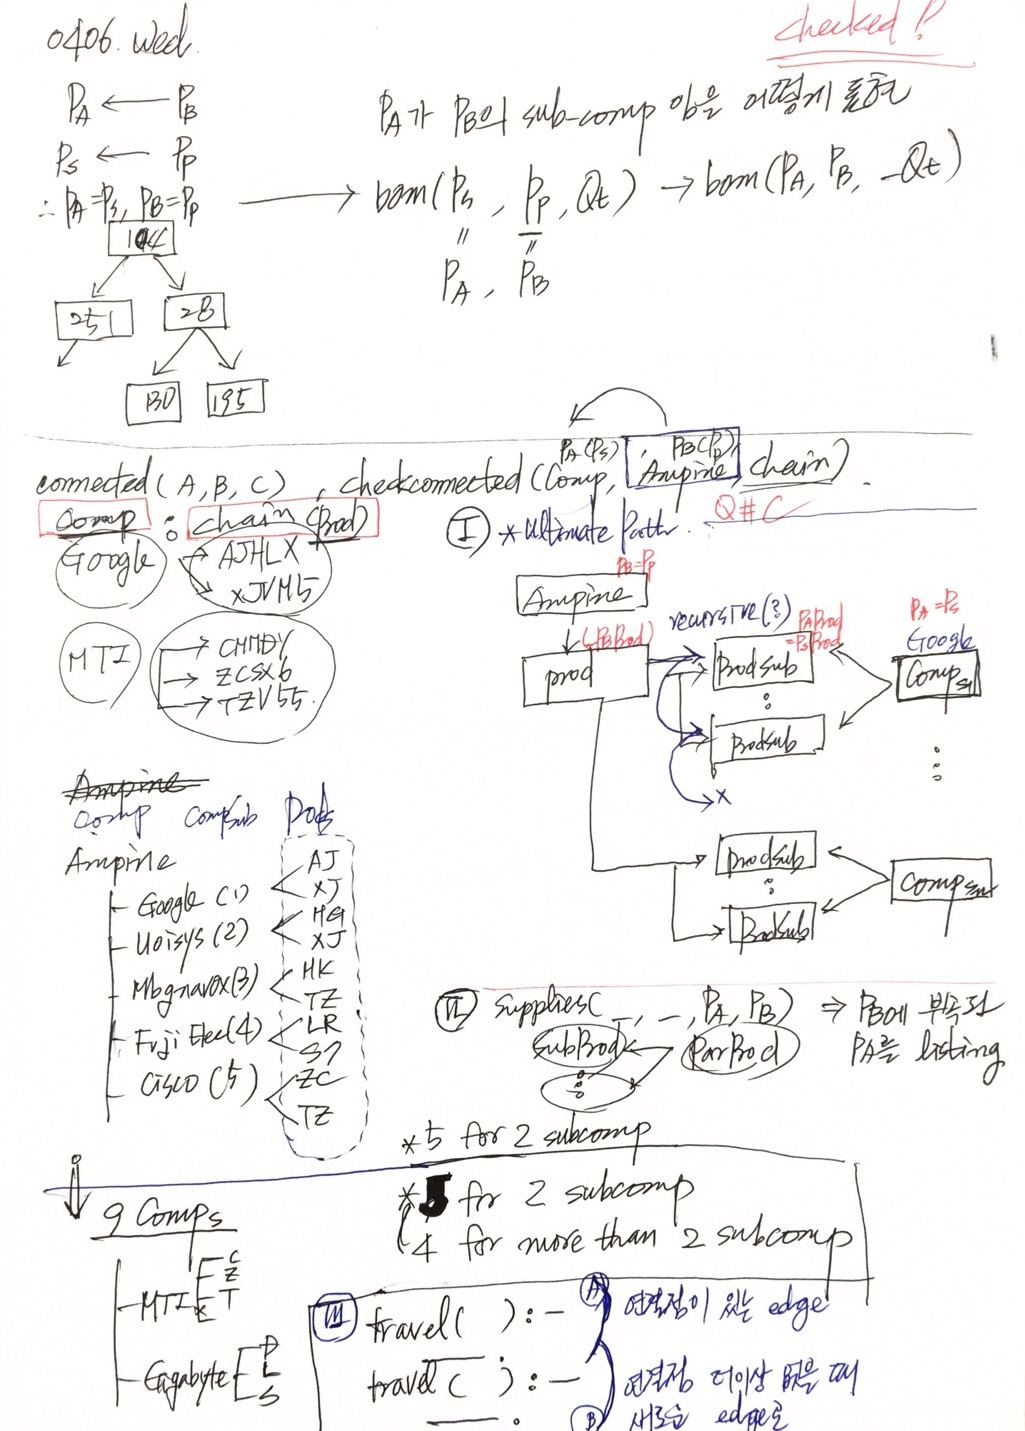 0406. wed.
checked!
PA ← PB
PA가 PB의 sub-comp 임을 어떻게 표현
Ps ← Pp
∴ PA=Ps, PB=Pp
→ bom(Ps, Pp, Qt) → bom(PA, PB, _Qt)
PA, PB
251 28
130 195
PA(Ps), PB(Pp),
connected(A, B, C), checkconnected(Comp, Ampine, chain).
Comp : chain (Prod)
Q#C
Google → AJHLX
→ XJVM5
MTI → CHMDY
→ ZCSX6
→ TZV55
I * Ultimate Path.
PB=Pp
Ampine
(=PBProd)
prod
recursive(3)
PAProd
=PsProd
Prodsub
Prodsub
x
PA=Ps
Google
Comp
prodsub
Prodsub
Ampine
Comp CompSub Prods
Ampine
Google (1) AJ
XJ
Uoisys (2) HG
XJ
Mbgnavox(3) HK
TZ
Fuji Elec(4) LR
S7
Cisco (5) ZC
TZ
II supplies(_, _, PA, PB) ⇒ PB에 부속된
PA를 listing
SubProd ParProd
*5 for 2 subcomp
9 Comps
* 5 for 2 subcomp
4 for more than 2 subcomp
MTI C
Z
T
Gigabyte P
L
S
III travel( ) :- A 연결점이 있는 edge
travel( ) :- 연결점 더이상 없을 때
B 새로운 edge로